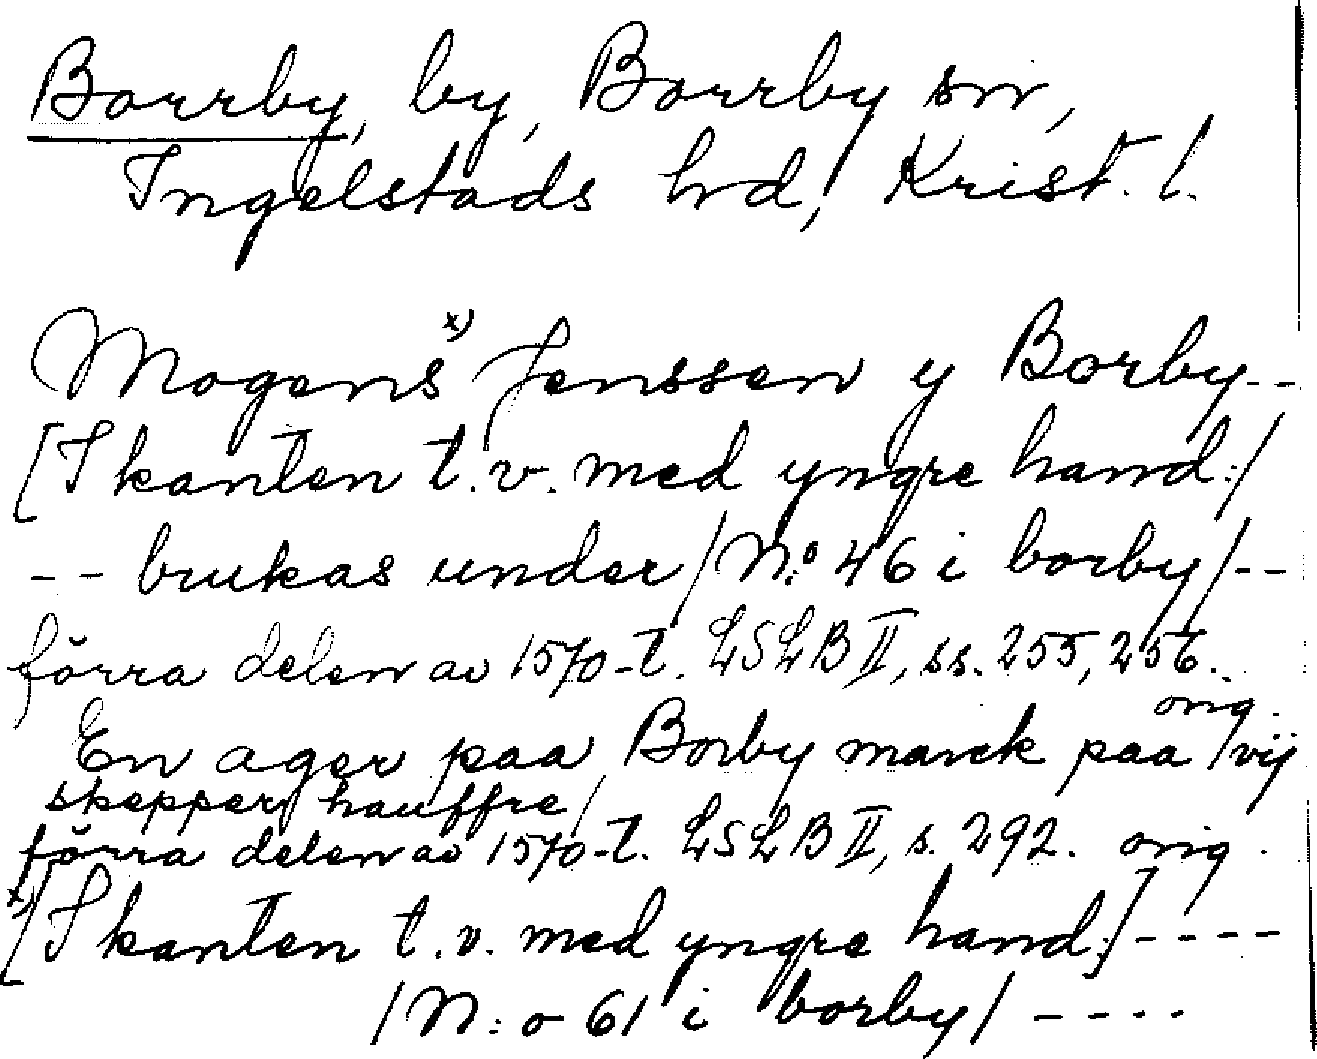 Borrby, by, Borrby sn,
Ingelstads hd, Krist. l.
Mogens x) Jenssen y Borby--
[I kanten t.v. med yngre hand:/
-- brukas under/N:o 46 i borby/--
förra delen av 1570-t. LSLB II, ss. 255, 256.
orig.
En ager paa Borby marck paa /vij
skepper hauffre/
förra delen av 1570-t. LSLB II, s. 292. orig.
x)[I kanten t.v. med yngre hand:]----
/N:o 61 i borby/----